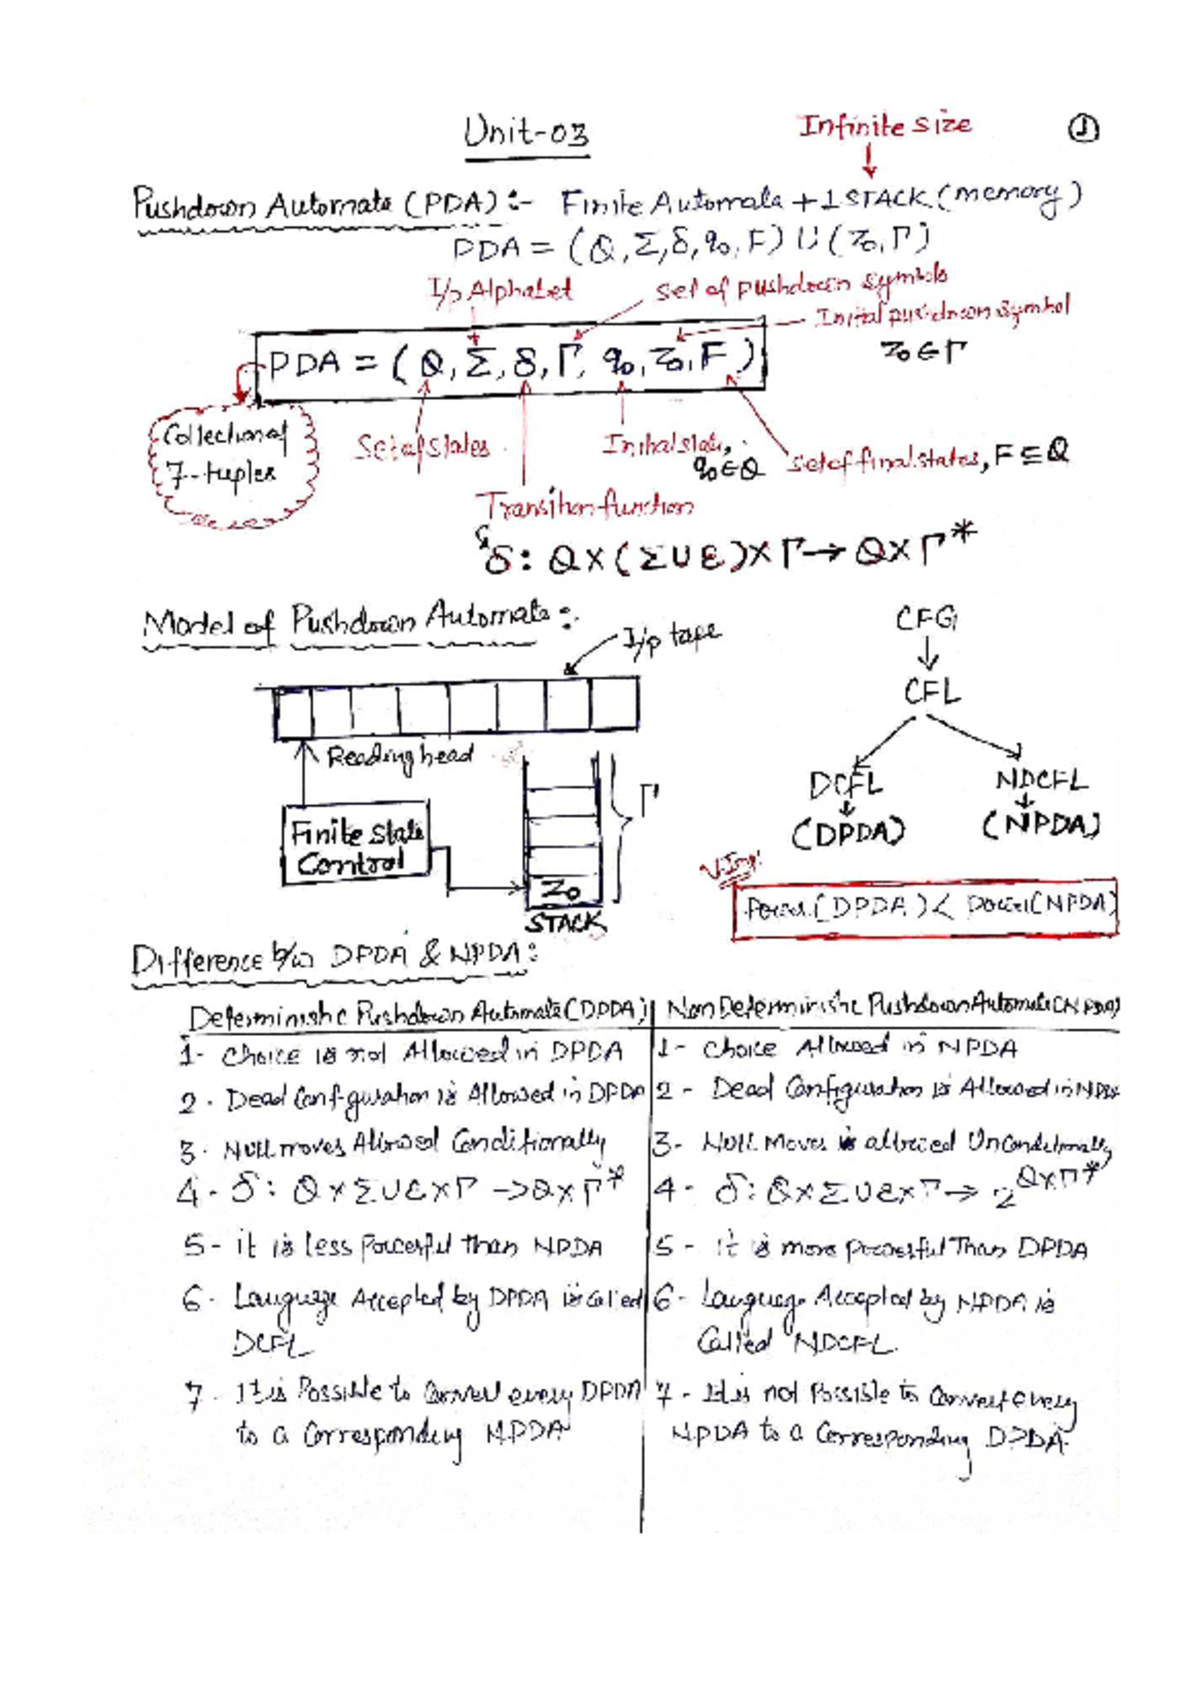 Unit-03
Infinite size
1
Pushdown Automate (PDA) :- Finite Automata + 1 STACK (memory)
PDA = (Q, Σ, δ, q₀, F) U (Z₀, Γ)
I/p Alphabet
set of pushdown symbols
Initial pushdown symbol
Z₀ ∈ Γ
PDA = ( Q, Σ, δ, Γ, q₀, Z₀, F )
Collection of
7-tuples
Set of States
Initial state,
q₀ ∈ Q
set of final states, F ⊆ Q
Transition function
δ : Q X ( Σ U ε ) X Γ → Q X Γ*
Model of Pushdown Automate :
I/p tape
Reading head
Finite State
Control
Γ
Z₀
STACK
CFG
CFL
DCFL
NDCFL
(DPDA)
(NPDA)
V.Imp:
Power (DPDA) < power (NPDA)
Difference b/w DPDA & NPDA :
Deterministic Pushdown Automate (DPDA)
Non Deterministic Pushdown Automate (NPDA)
1- Choice is not Allowed in DPDA
1- Choice Allowed in NPDA
2. Dead Configuration is Allowed in DPDA
2- Dead Configuration is Allowed in NPDA
3. Null moves Allowed Conditionally
3- Null Moves is allowed UnConditionally
4- δ : Q X Σ U ε X Γ -> Q X Γ*
4- δ : Q X Σ U ε X Γ → 2^Q X Γ*
5- it is less powerful than NPDA
5- it is more powerful Than DPDA
6- Language Accepted by DPDA is Called
DCFL
6- Language Accepted by NPDA is
Called NDCFL.
7. It is Possible to Convert every DPDA
to a Corresponding NPDA
7- It is not Possible to Convert every
NPDA to a Corresponding DPDA.